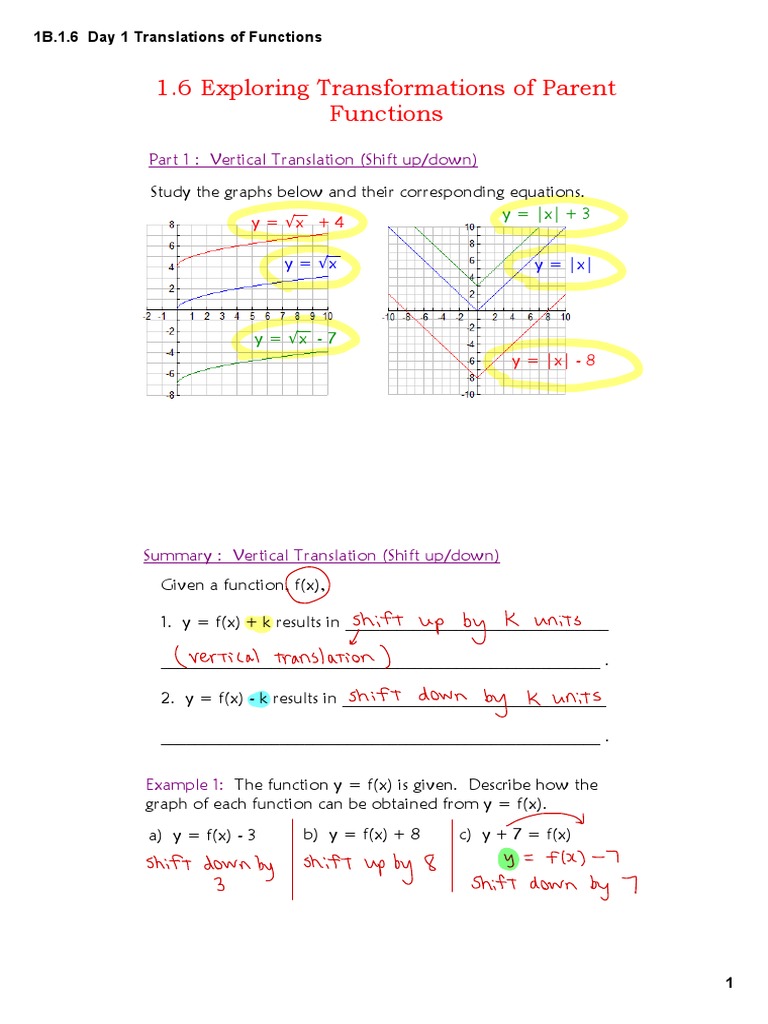 1B.1.6 Day 1 Translations of Functions
1.6 Exploring Transformations of Parent
Functions
Part 1 : Vertical Translation (Shift up/down)
Study the graphs below and their corresponding equations.
y = √x + 4
y = √x
y = √x - 7
8
6
4
2
-2 -1 1 2 3 4 5 6 7 8 9 10
-2
-4
-6
-8
y = |x| + 3
y = |x|
y = |x| - 8
10
8
6
4
2
-10 -8 -6 -4 -2 2 4 6 8 10
-2
-4
-6
8
-10
Summary : Vertical Translation (Shift up/down)
Given a function, f(x),
1. y = f(x) + k results in shift up by K units
(vertical translation) .
2. y = f(x) - k results in shift down by K units
.
Example 1: The function y = f(x) is given. Describe how the
graph of each function can be obtained from y = f(x).
a) y = f(x) - 3
shift down by
3
b) y = f(x) + 8
shift up by 8
c) y + 7 = f(x)
y = f(x) - 7
shift down by 7
1